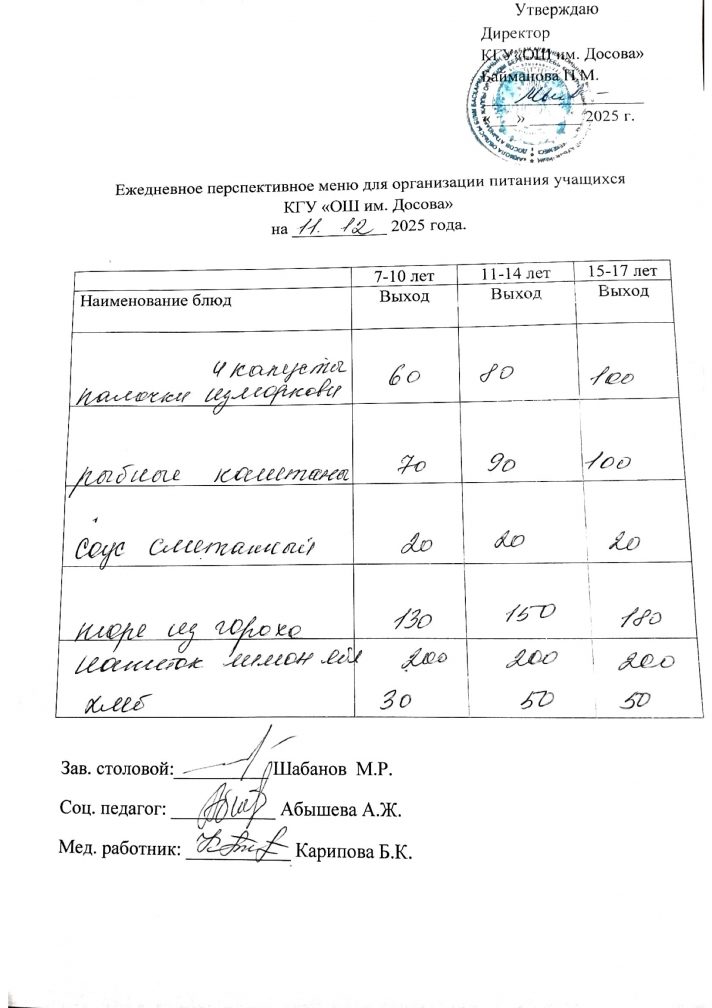 Утверждаю
Директор
КГУ «ОШ им. Досова»
Байманова П.М.
« » 2025 г.
Ежедневное перспективное меню для организации питания учащихся
КГУ «ОШ им. Досова»
на 11. 12 2025 года.
7-10 лет 11-14 лет 15-17 лет
Наименование блюд Выход Выход Выход
и капусты
палочки из моркови 60 80 100
рыбные каштаны 70 90 100
соус сметанный 20 20 20
пюре из гороха 130 150 180
напиток лимон 200 200 200
хлеб 30 50 50
Зав. столовой: Шабанов М.Р.
Соц. педагог: Абышева А.Ж.
Мед. работник: Карипова Б.К.